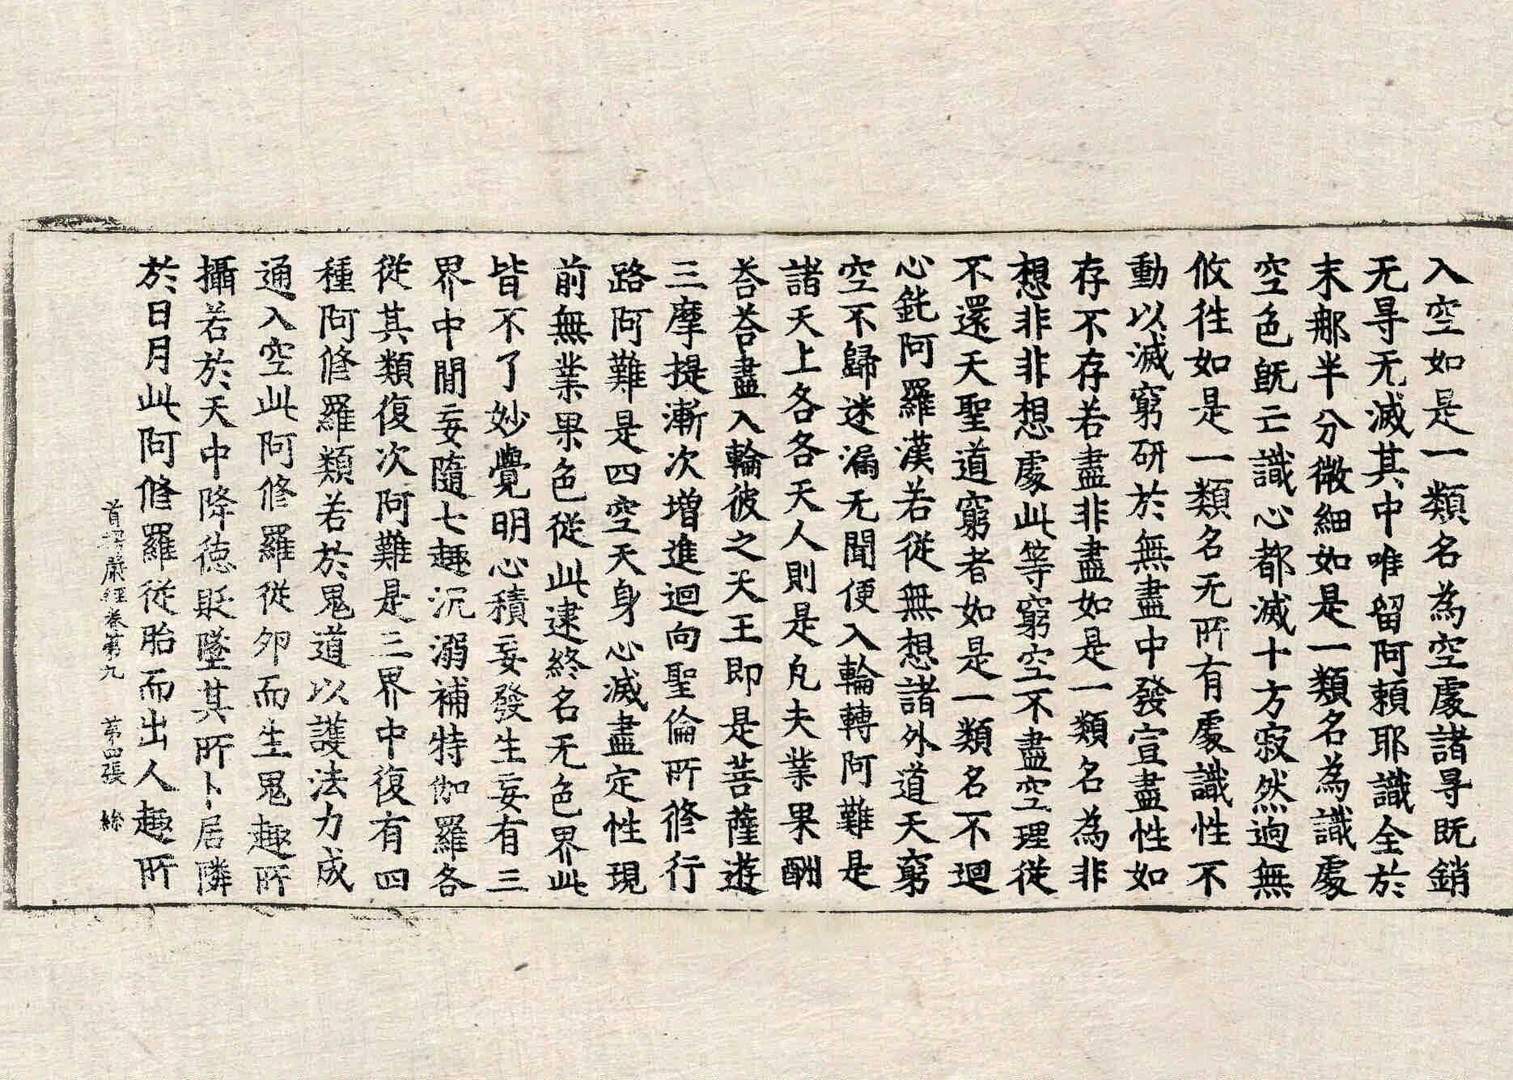 入空如是一類名為空處諸㝵既銷
无㝵无滅其中唯留阿頼耶識全於
末那半分微細如是一類名為識處
空色既亡識心都滅十方寂然逈無
攸往如是一類名无所有處識性不
動以滅窮研於無盡中發宣盡性如
存不存若盡非盡如是一類名為非
想非非想處此等窮空不盡空理従
不還天聖道窮者如是一類名不迴
心鈍阿羅漢若従無想諸外道天窮
空不歸迷漏无聞便入輪轉阿難是
諸天上各各天人則是凡夫業果酬
荅荅盡入輪彼之天王即是菩薩遊
三摩提漸次增進迴向聖倫所修行
路阿難是四空天身心滅盡定性現
前無業果色従此逮終名无色界此
皆不了妙覺明心積妄發生妄有三
界中間妄隨七趣沉溺補特伽羅各
従其類復次阿難是三界中復有四
種阿修羅類若於鬼道以護法力成
通入空此阿修羅従卵而生鬼趣所
攝若於天中降德貶墜其所卜居隣
於日月此阿修羅従胎而出人趣所
首楞嚴經卷第九 第四張 絲